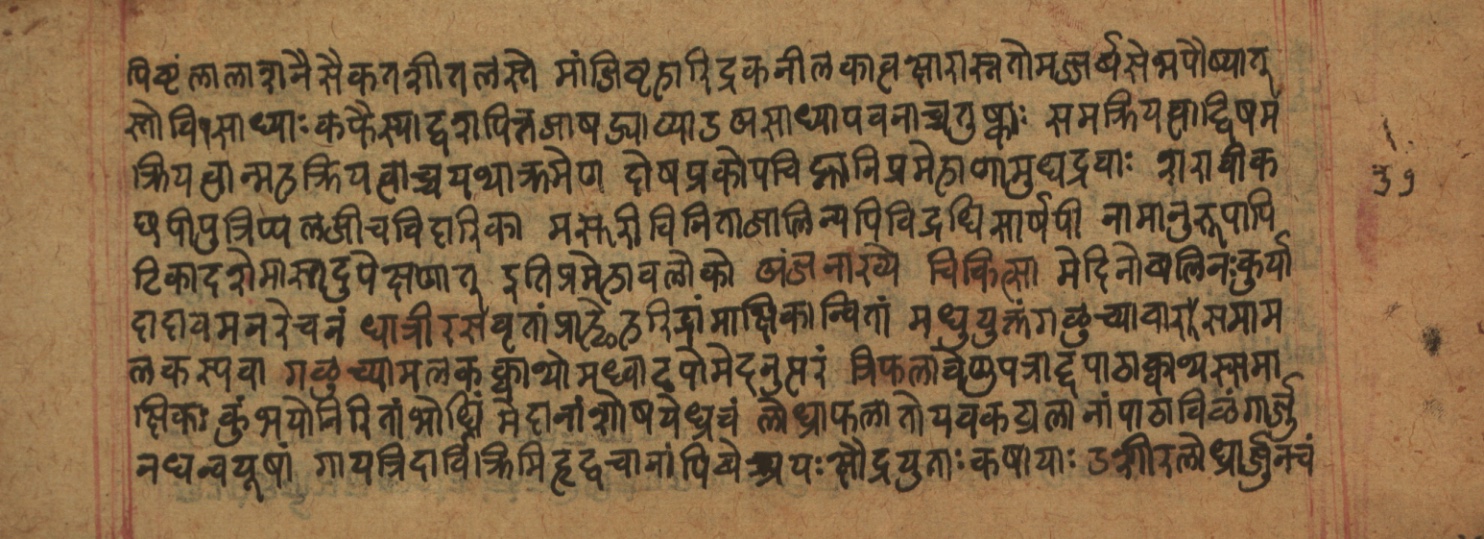 पिष्टं लालाशनै सैकतशीतलस्ते मांजिष्ठहारिद्रकनीलकालक्षारास्रतो मज्जर्व्वसेभपौष्यात्
स्तो वि१साध्याः कफैस्याद्दशपित्तजाषड्याप्या ऽअसाध्यापवनाच्चतुष्काः समक्रियत्वाद्विषम
क्रियत्वान्महक्रियत्वाच्चयथाक्रमेण दोषप्रकोपचिह्नानि प्रमेहाणामुपद्रवाः शरावीक
छपीपुत्रिप्पलजीचविदारिका मसूरी चिनिताजालिन्यपि विद्रधि सार्षपी नामानुरूपापि
टिकादशेमास्तदुपेक्षणात् इति प्रमेहावलोको अंजनाख्ये चिकित्सा मेदिनोबलिनःकुर्या
दादावमनरेचनं धात्रीरसेवृतां प्राह्णेहरिद्रां माक्षिकान्वितां मधुयुक्तं गळुच्यावारससमाम
लकस्पवा गळुच्यामलकक्वाथो मध्वादुपोमेदनुत्परं त्रिफलावेणुपत्राद्दपाठाक्वाथस्समा
क्षिकः कुंभयोनिरितांभोधिं मेदानां शोषयेध्रुवं लोध्राफलातोयवकद्यलानां पाठाविळंगार्जु
नधन्वयूषां गायत्रिदार्विक्रिमिहृद्वचानां पिबेच्त्रयः क्षौद्रयुताः कषायाः ऽशीरलोध्रार्जुनचं
३९